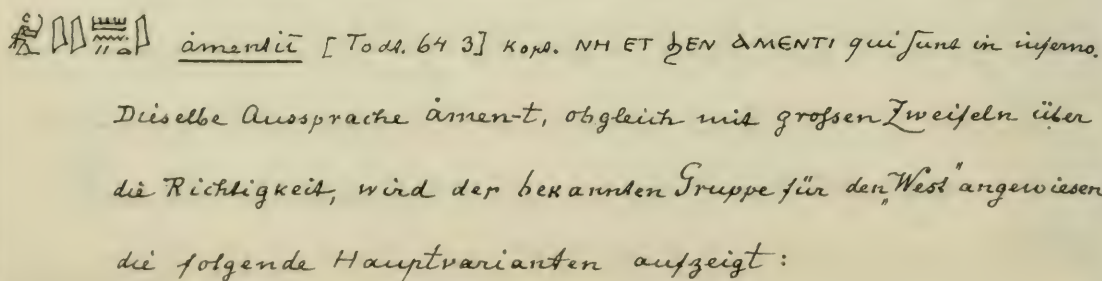 åmentiï [Todt. 64 3] Kopt. ΝΗ ΕΤ ϦΕΝ ΑΜΕΝΤΙ qui sunt in inferno.
Dieselbe Aussprache åmen-t, obgleich mit großen Zweifeln über
die Richtigkeit, wird der bekannten Gruppe für den „West" angewiesen
die folgende Hauptvarianten aufzeigt: